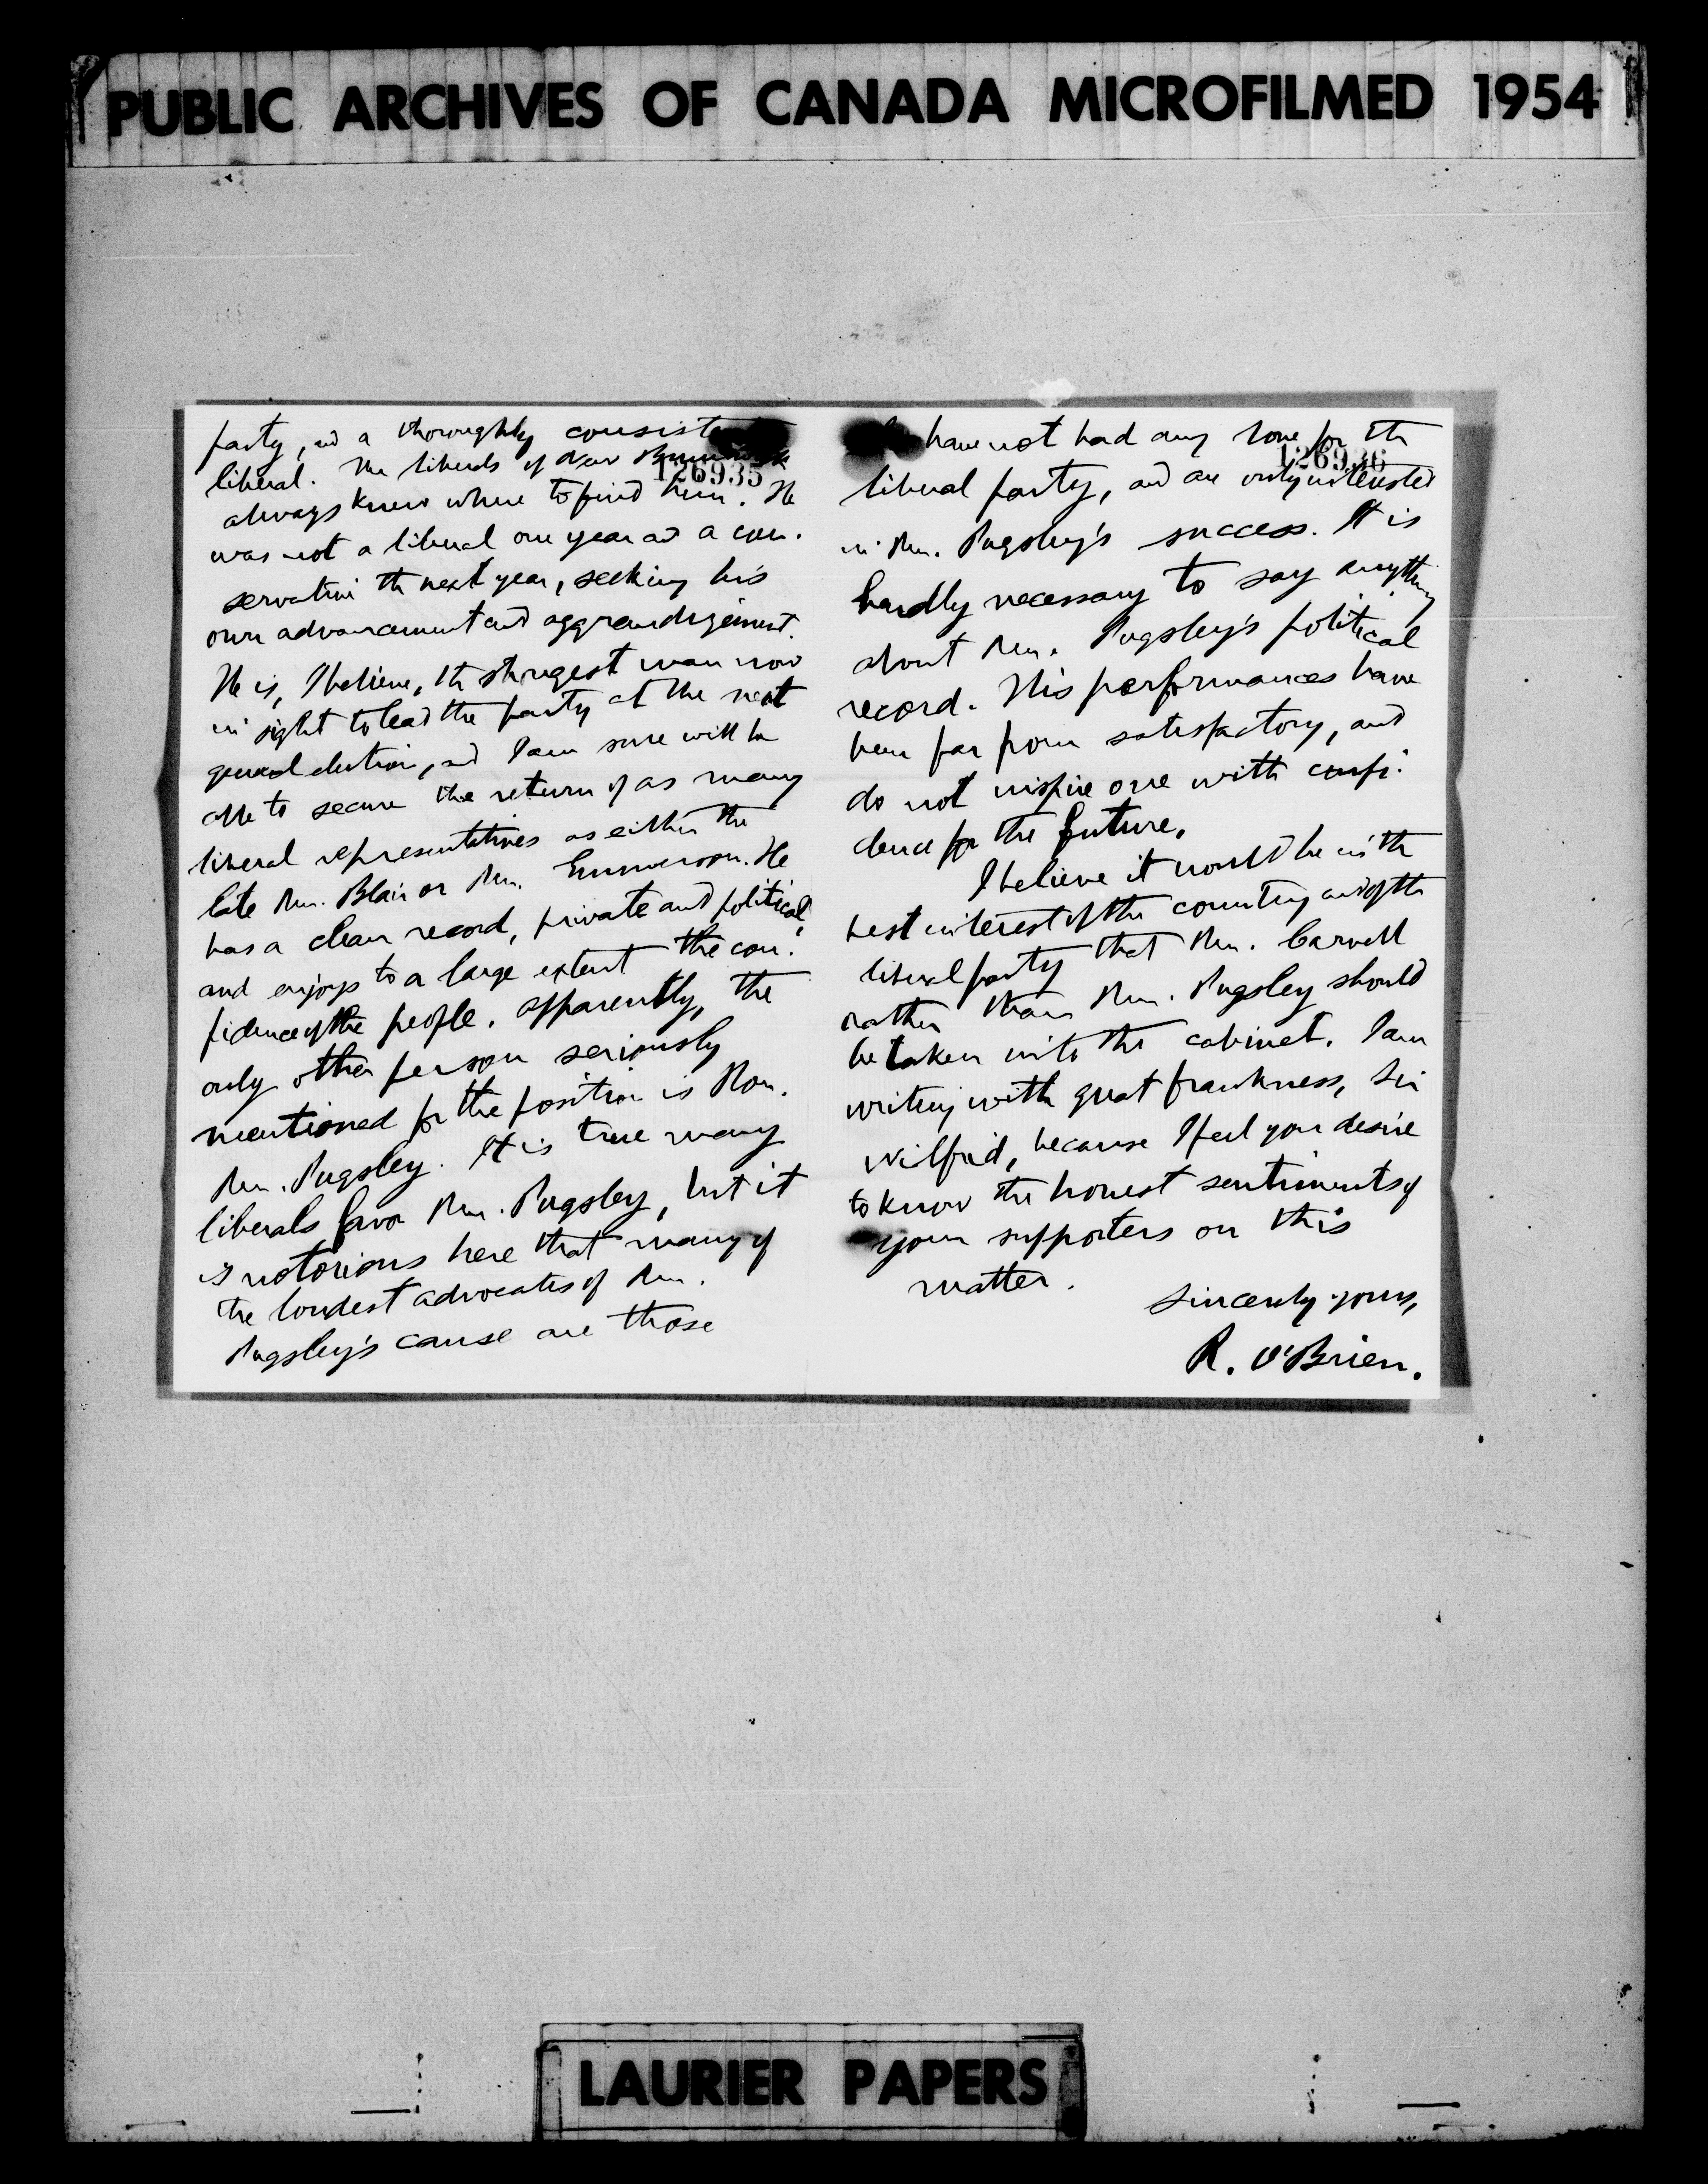 PUBLIC ARCHIVES OF CANADA MICROFILMED 1954
party, and a thoroughly consistent
liberal. The liberals of New Brunswick
126935
always knew where to find him. He
was not a liberal one year and a con-
servative the next year, seeking his
own advancement and aggrandizement.
He is, I believe, the strongest man now
in sight to lead the party at the next
general election, and I am sure will be
able to secure the return of as many
liberal representatives as either the
late Mr. Blair or Mr. Emmerson. He
has a clean record, private and political,
and enjoys to a large extent the con-
fidence of the people. Apparently, the
only other person seriously
mentioned for the position is Hon.
Mr. Pugsley. It is true many
liberals favor Mr. Pugsley, but it
is notorious here that many of
the loudest advocates of Mr.
Pugsley's cause are those
have not had any love for the
126936
liberal party, and are only interested
in Mr. Pugsley's success. It is
hardly necessary to say anything
about Mr. Pugsley's political
record. His performances have
been far from satisfactory, and
do not inspire one with confi-
dence for the future.
I believe it would be in the
best interest of the country and of the
liberal party that Mr. Carvell
rather than Mr. Pugsley should
be taken into the cabinet. I am
writing with great frankness, Sir
Wilfrid, because I feel you desire
to know the honest sentiments of
your supporters on this
matter.
Sincerely yours,
R. O'Brien.
LAURIER PAPERS